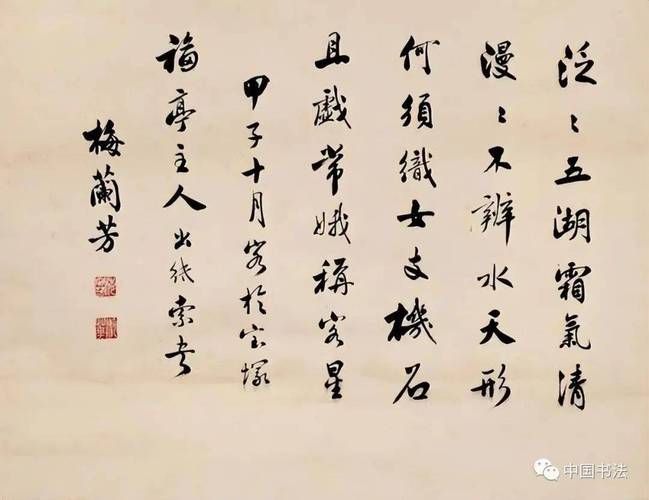 泛〻五湖霜氣清
漫〻不辨水天形
何須織女支機石
且戲常娥稱客星
甲子十月客於宝塚
福亭主人出紙索書
梅蘭芳
中国书法